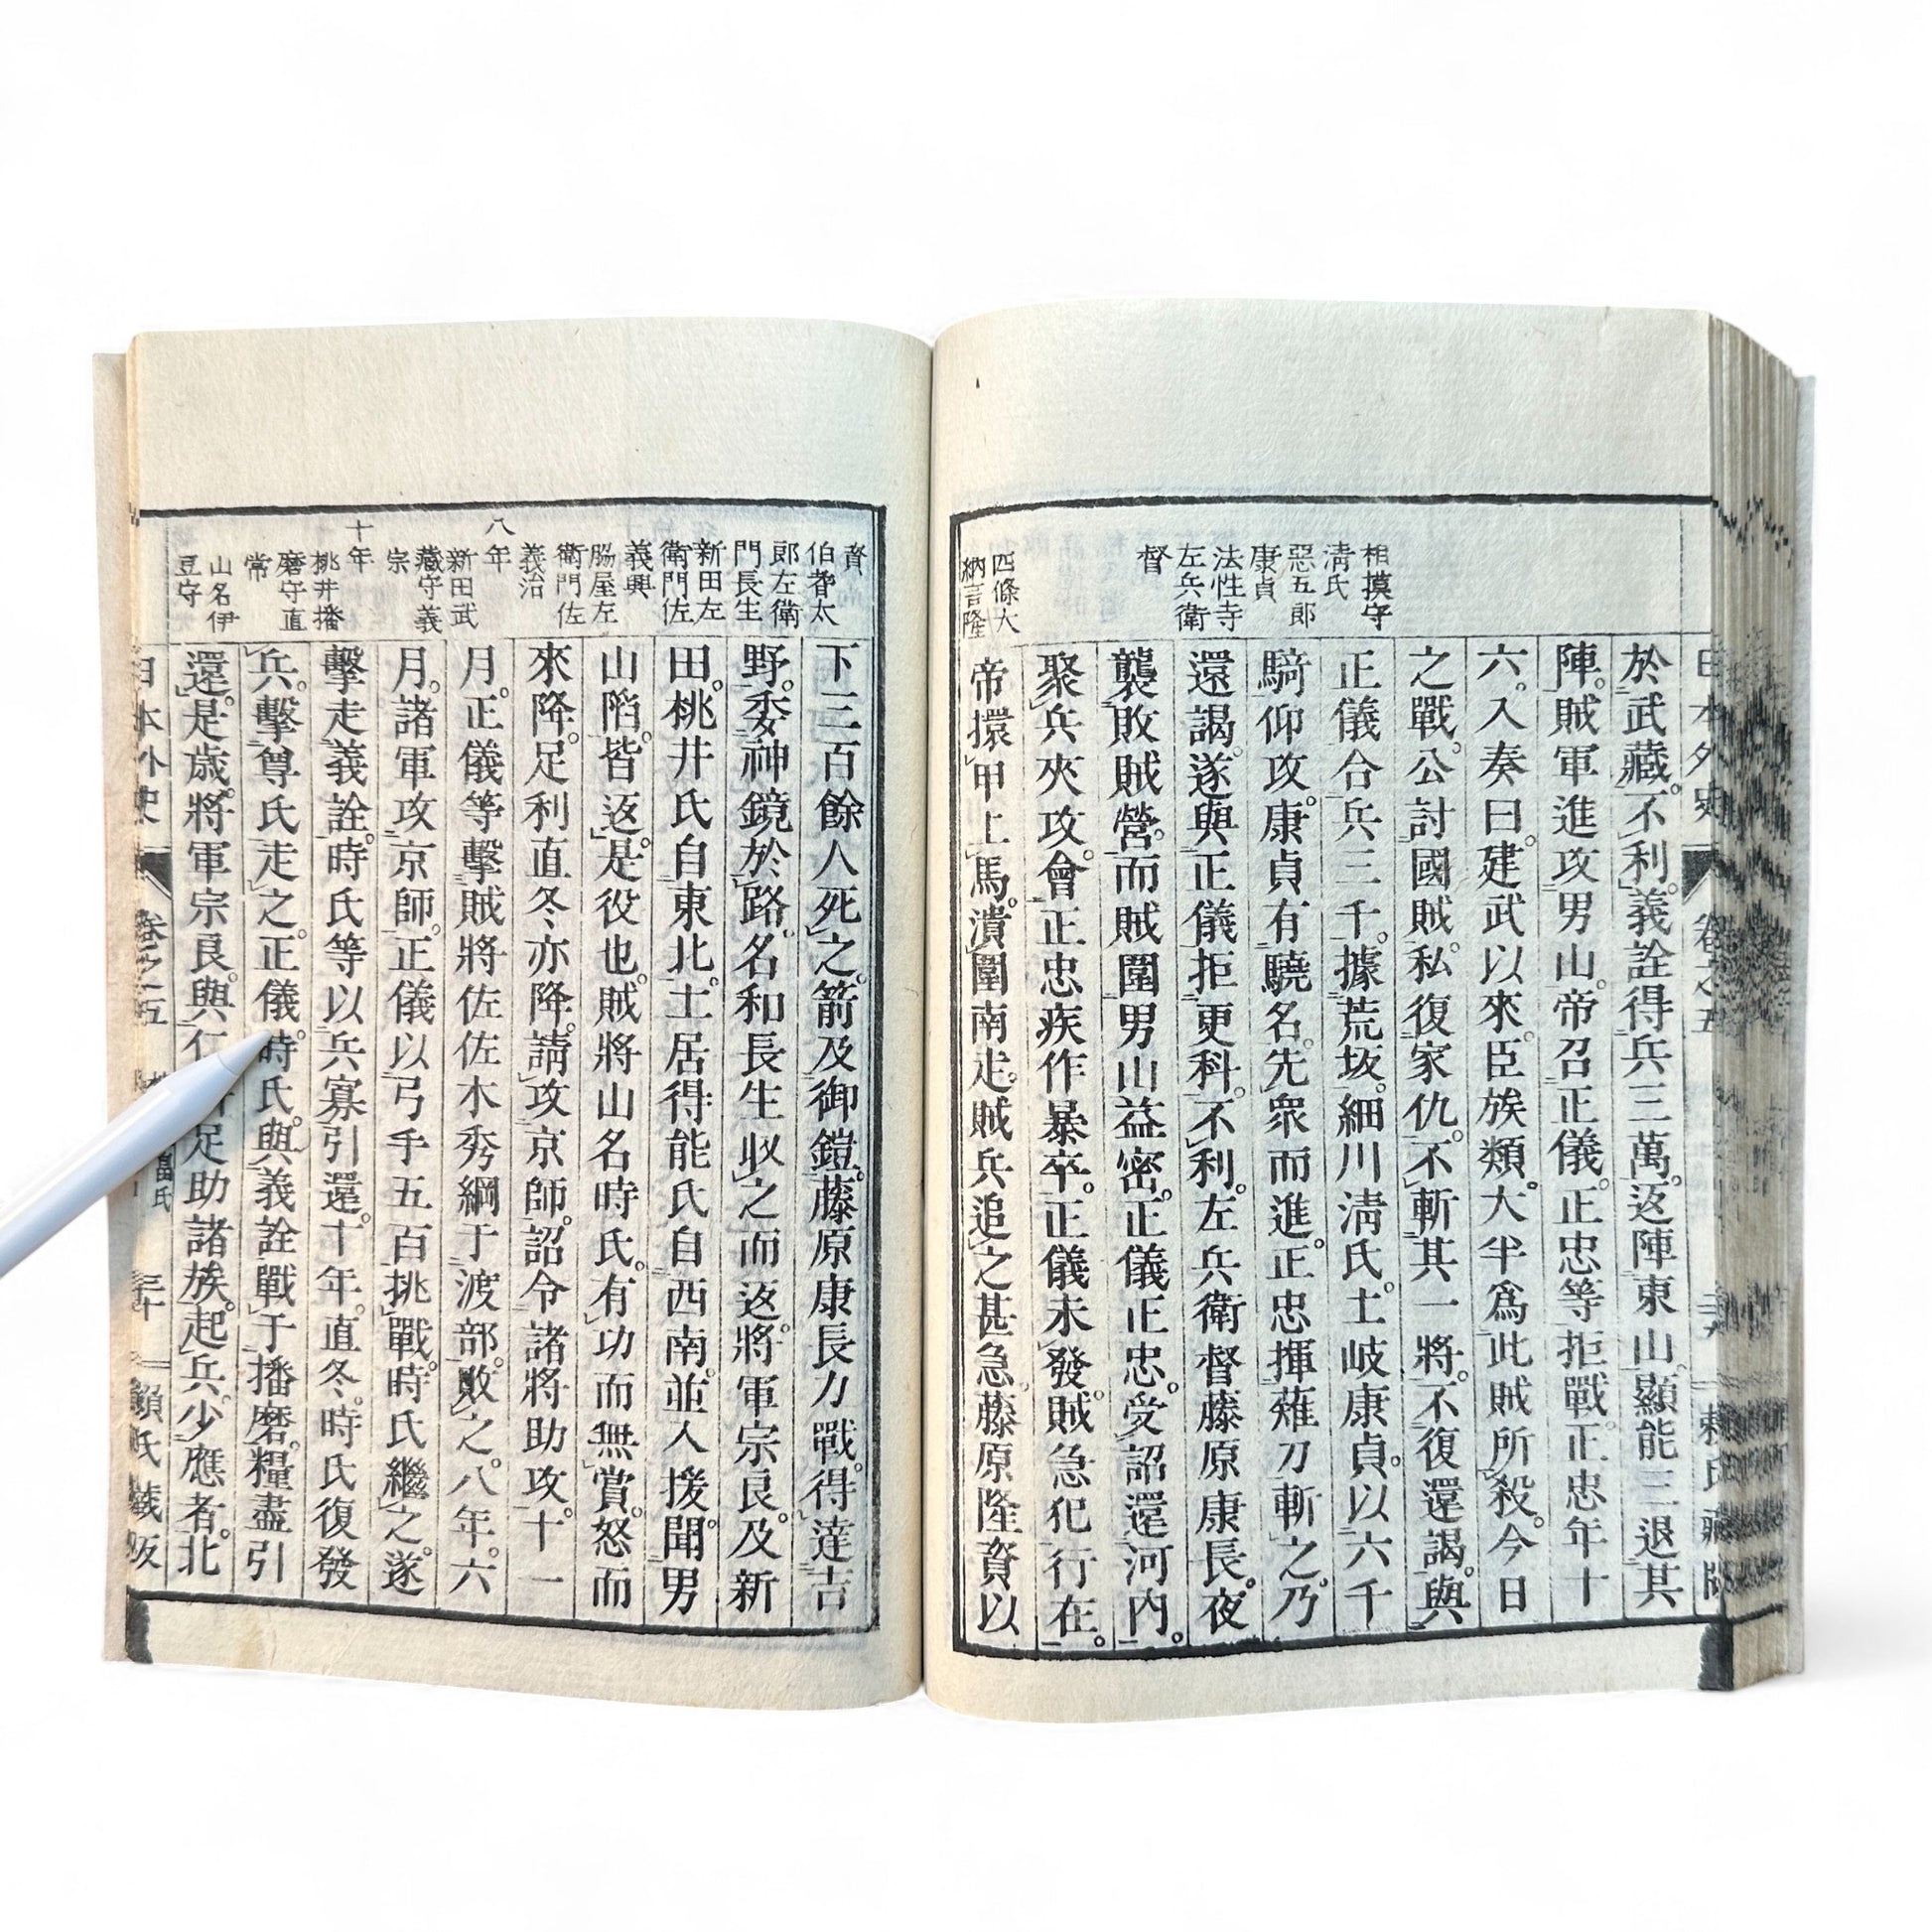 日本外史
卷之五
賴氏藏版
相摸守
淸氏
惡五郎
康貞
法性寺
左兵衛
督
四條大
納言隆
於武藏。不利。義詮得兵三萬。返陣東山。顯能三退其
陣。賊軍進攻男山。帝召正儀。正忠等拒戰。正忠年十
六。入奏曰。建武以來。臣族類。大半爲此賊所殺。今日
之戰。公討國賊。私復家仇。不斬其一將。不復還謁。與
正儀合兵三千。據荒坂。細川淸氏。土岐康貞。以六千
騎仰攻。康貞有驍名。先衆而進。正忠揮薙刀斬之。乃
還謁。遂與正儀拒更科。不利。左兵衛督藤原康長。夜
襲敗賊營。而賊圍男山益密。正儀正忠。受詔還河内。
聚兵夾攻。會正忠疾作暴卒。正儀未發。賊急犯行在。
帝擐甲上馬。潰圍南走。賊兵追之甚急。藤原隆資以
資
伯耆太
郎左衛
門長生
新田左
衛門佐
義興
脇屋左
衛門佐
義治
八年
新田武
藏守義
宗
十年
桃井播
磨守直
常
山名伊
豆守
下三百餘人死之。箭及御鎧。藤原康長力戰。得達吉
野。委神鏡於路。名和長生收之而返。將軍宗良。及新
田。桃井氏自東北。土居得能氏自西南。並入援。聞男
山陷。皆返。是役也。賊將山名時氏。有功而無賞。怒而
來降。足利直冬亦降。請攻京師。詔令諸將助攻。十一
月。正儀等擊賊將佐佐木秀綱于渡部。敗之。八年。六
月。諸軍攻京師。正儀以弓手五百挑戰。時氏繼之。遂
擊走義詮。時氏等以兵寡引還。十年。直冬。時氏復發
兵。擊尊氏走之。正儀。時氏。與義詮戰于播磨。糧盡引
還。是歲。將軍宗良。與仁足助諸族。起兵。少應者。北
日本外史
卷之五
三十
賴氏藏版